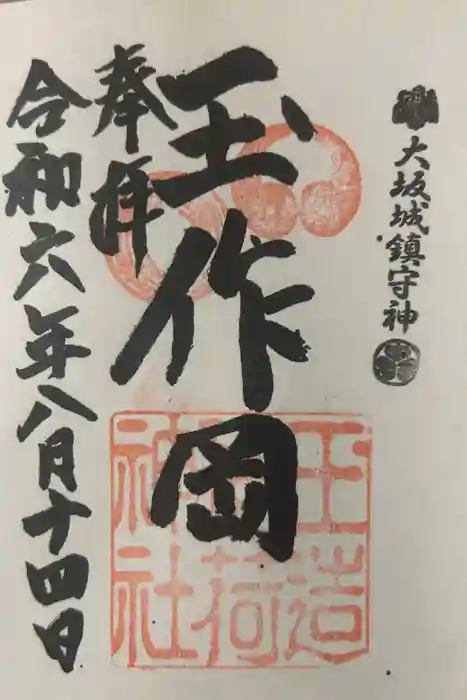 大坂城鎮守神
玉作岡
奉拝
令和六年八月十四日
玉造
稲荷
神社